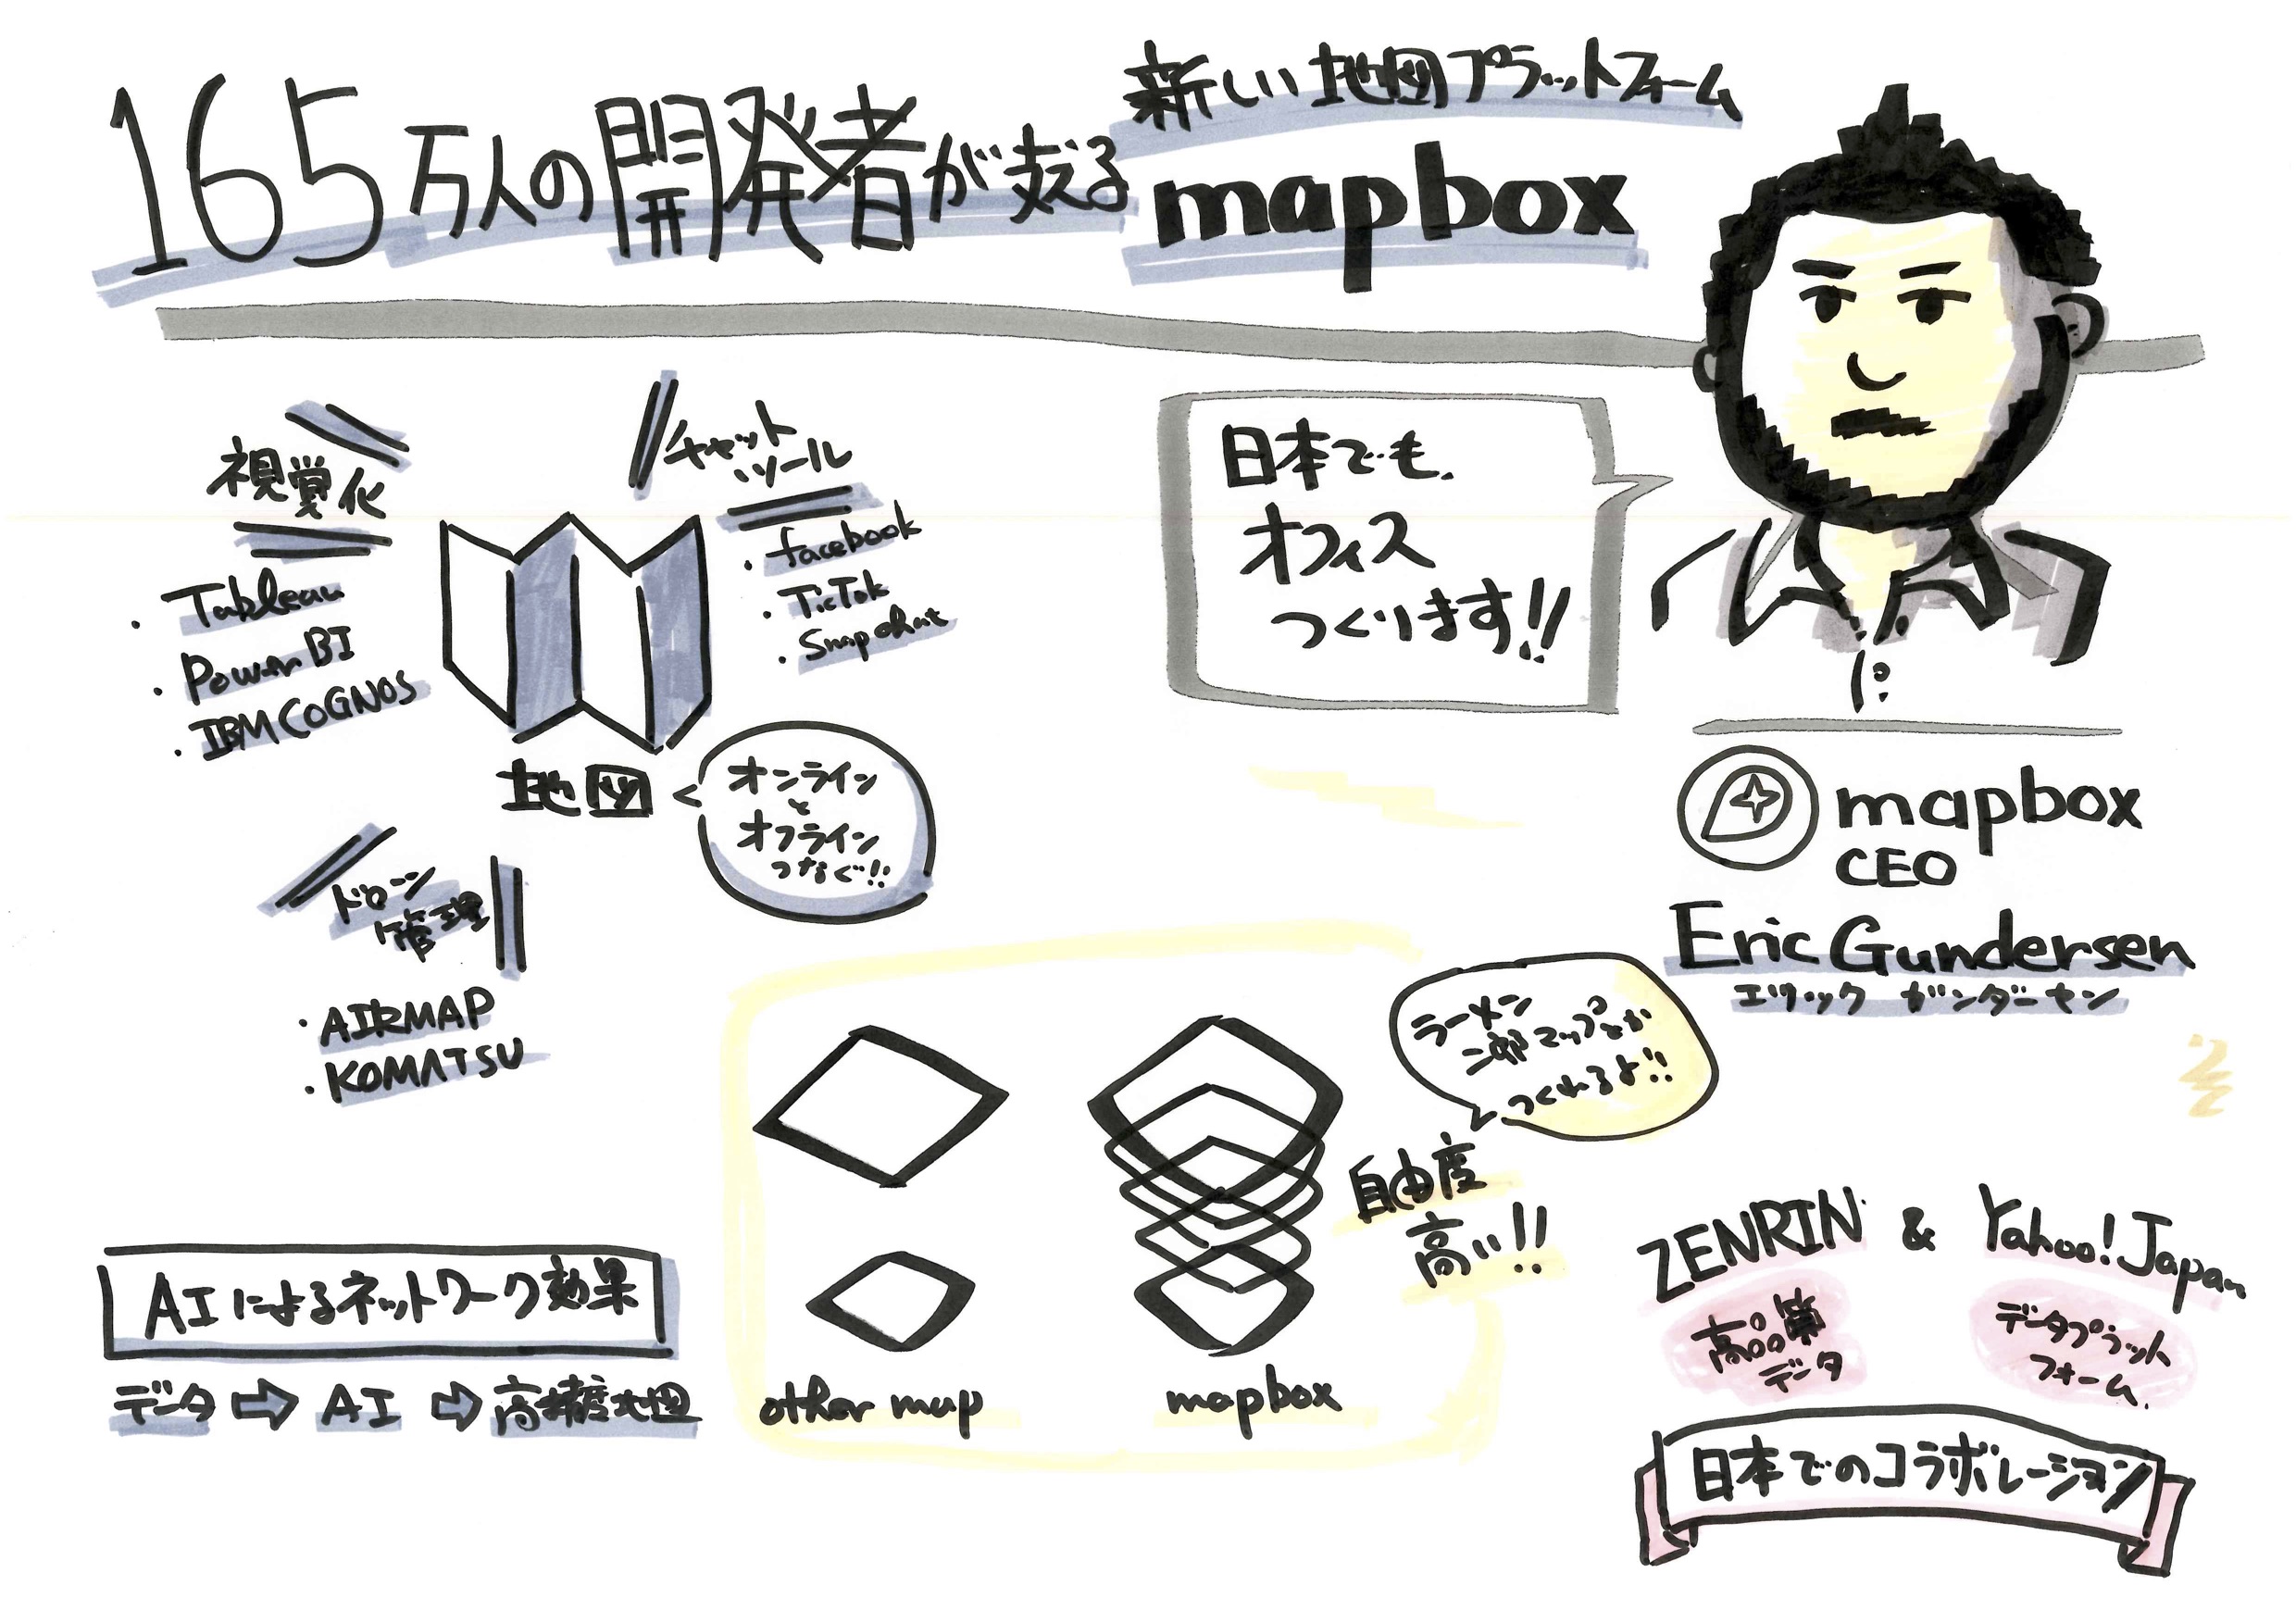 165万人の開発者が支える
新しい地図プラットフォーム
mapbox
視覚化
・Tableau
・Power BI
・IBM COGNOS
チャット
ツール
・facebook
・TicTok
・Snapchat
地図
オンライン
と
オフライン
つなぐ!!
ドローン
管理
・AIRMAP
・KOMATSU
日本でも、
オフィス
つくります!!
mapbox
CEO
Eric Gundersen
エリック ガンダーセン
AIによるネットワーク効果
データ⇨AI⇨高精度地図
other map
mapbox
ラーメン
二郎マップとか
つくれるよ!!
自由度
高い!!
ZENRIN & Yahoo! Japan
高品質
データ
データプラット
フォーム
日本でのコラボレーション